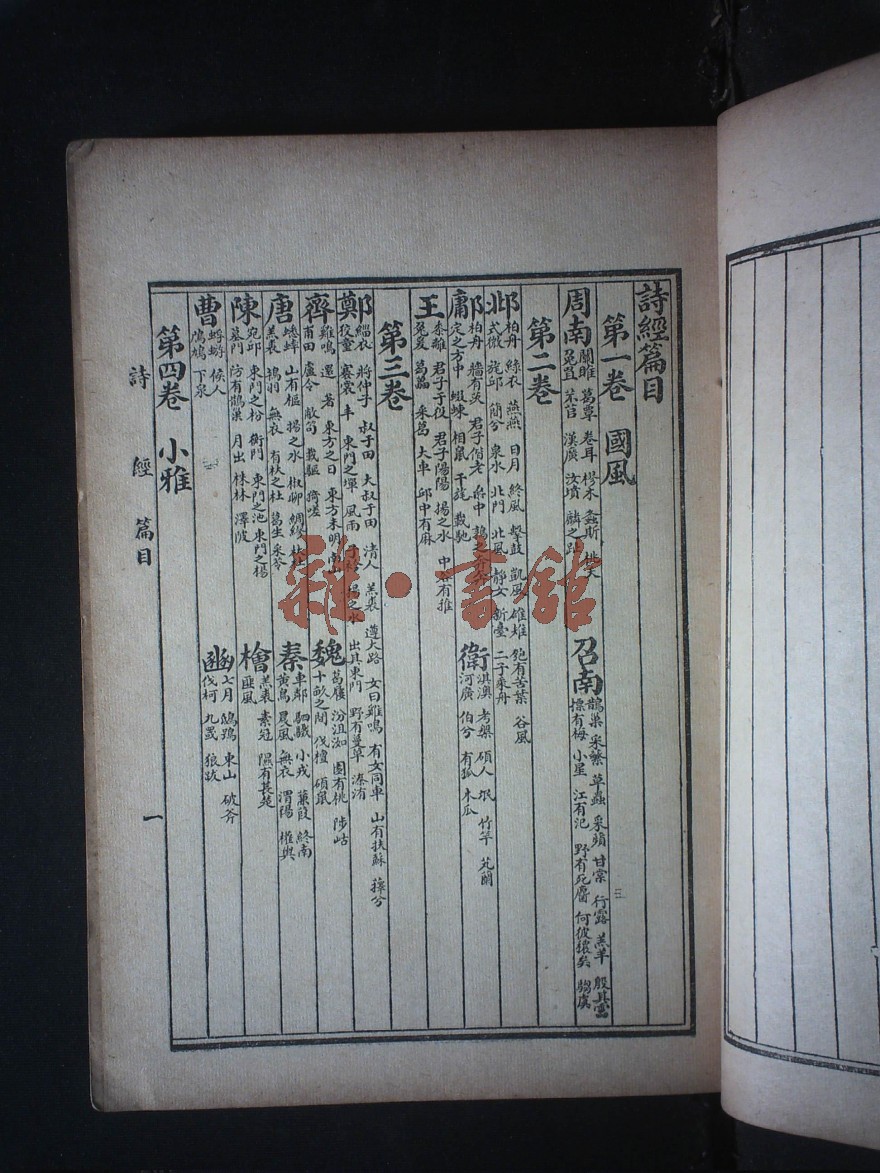 詩經篇目
第一卷 國風
周南 關雎 葛覃 卷耳 樛木 螽斯 桃夭
兔罝 芣苢 漢廣 汝墳 麟之趾
召南 鵲巢 采蘩 草蟲 采蘋 甘棠 行露 羔羊 殷其靁
摽有梅 小星 江有汜 野有死麕 何彼穠矣 騶虞
第二卷
邶 柏舟 綠衣 燕燕 日月 終風 擊鼓 凱風 雄雉 匏有苦葉 谷風
式微 旄邱 簡兮 泉水 北門 北風 靜女 新臺 二子乘舟
鄘 柏舟 牆有茨 君子偕老 桑中 鶉之奔奔
定之方中 蝃蝀 相鼠 干旄 載馳
衛 淇澳 考槃 碩人 氓 竹竿 芄蘭
河廣 伯兮 有狐 木瓜
王 黍離 君子于役 君子陽陽 揚之水 中谷有蓷
兔爰 葛藟 采葛 大車 邱中有麻
第三卷
鄭 緇衣 將仲子 叔于田 大叔于田 清人 羔裘 遵大路 女曰雞鳴 有女同車 山有扶蘇 蘀兮
狡童 褰裳 丰 東門之墠 風雨 子衿 揚之水 出其東門 野有蔓草 溱洧
齊 雞鳴 還 著 東方之日 東方未明 南山
甫田 盧令 敝笱 載驅 猗嗟
魏 葛屨 汾沮洳 園有桃 陟岵
十畝之閒 伐檀 碩鼠
唐 蟋蟀 山有樞 揚之水 椒聊 綢繆 杕杜
羔裘 鴇羽 無衣 有杕之杜 葛生 采苓
秦 車鄰 駟驖 小戎 蒹葭 終南
黃鳥 晨風 無衣 渭陽 權輿
陳 宛邱 東門之枌 衡門 東門之池 東門之楊
墓門 防有鵲巢 月出 株林 澤陂
檜 羔裘 素冠 隰有萇楚
匪風
曹 蜉蝣 候人
鳲鳩 下泉
豳 七月 鴟鴞 東山 破斧
伐柯 九罭 狼跋
第四卷 小雅
詩經 篇目 一
雜·書館